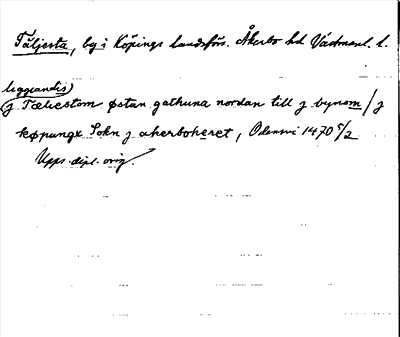 Täljesta, by i Köpings landsförs. Åkerbo hd Västmanl. l.
liggiandis)
(j Tæliestom østan gathuna nordan till j bynom / j
køpungx Sokn j akerboheret, Odensvi 1470 5/2
Upps. dipl. orig.